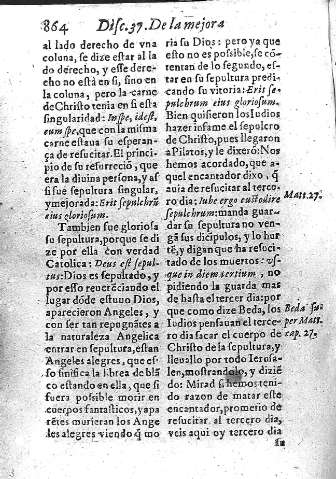 864 Disc. 37. De la mejora
al lado derecho de vna
coluna, se dize estar al la
do derecho, y esse dere-
cho no està en si, sino en
la coluna, pero la carne
de Christo tenia en si esta
singularidad: In spe, id est,
cum spe, que con la misma
carne estaua su esperan-
ça de resucitar. El princi-
pio de su resurreció, que
era la diuina persona, y as
si fue sepultura singular,
y mejorada: Erit sepulchrũ
eius gloriosum.
Tambien fue gloriosa
su sepultura, porque se di
ze por ella con verdad
Catolica: Deus est sepul-
tus: Dios es sepultado, y
por esso reuerēciando el
lugar dóde estuuo Dios,
aparecieron Angeles, y
con ser tan repugnātes a
la naturaleza Angelica
entrar en sepultura, estan
Angeles alegres, que es-
so sinifica la librea de blā
co estando en ella, que si
fuera possible morir en
cuerpos fantasticos, y apa
rētes murieran los Ange
les alegres viendo q̃ mo
ria su Dios: pero ya que
esto no es possible, se cō-
tentan de lo segundo, es-
tar en su sepultura predi
cando su vitoria: Erit se-
pulchrum eius gloriosum.
Bien quisieron los Iudios
hazer infame el sepulcro
de Christo, pues llegaron
a Pilatos, y le dixerō: Nos
hemos acordado, que a-
quel encantador dixo, q̃
auia de resucitar al terce-
ro dia: Iube ergo custodire
sepulchrum: manda guar-
dar su sepultura no ven-
gā sus dicipulos, y lo hur
tē, y digan que ha resuci-
tado de los muertos: vs-
que in diem tertium, no
pidiendo la guarda mas
de hasta el tercer dia: por
que como dize Beda, los
Iudios pensauan el terce-
ro dia sacar el cuerpo de
Christo de la sepultura, y
lleuallo por todo Ierosa-
len, mostrandolo, y diziē
do: Mirad si hemos teni-
do razon de matar este
encantador, prometio de
resucitar al tercero dia,
veis aqui oy tercero dia
su
Matt. 27.
Beda su-
per Matt.
cap. 27.